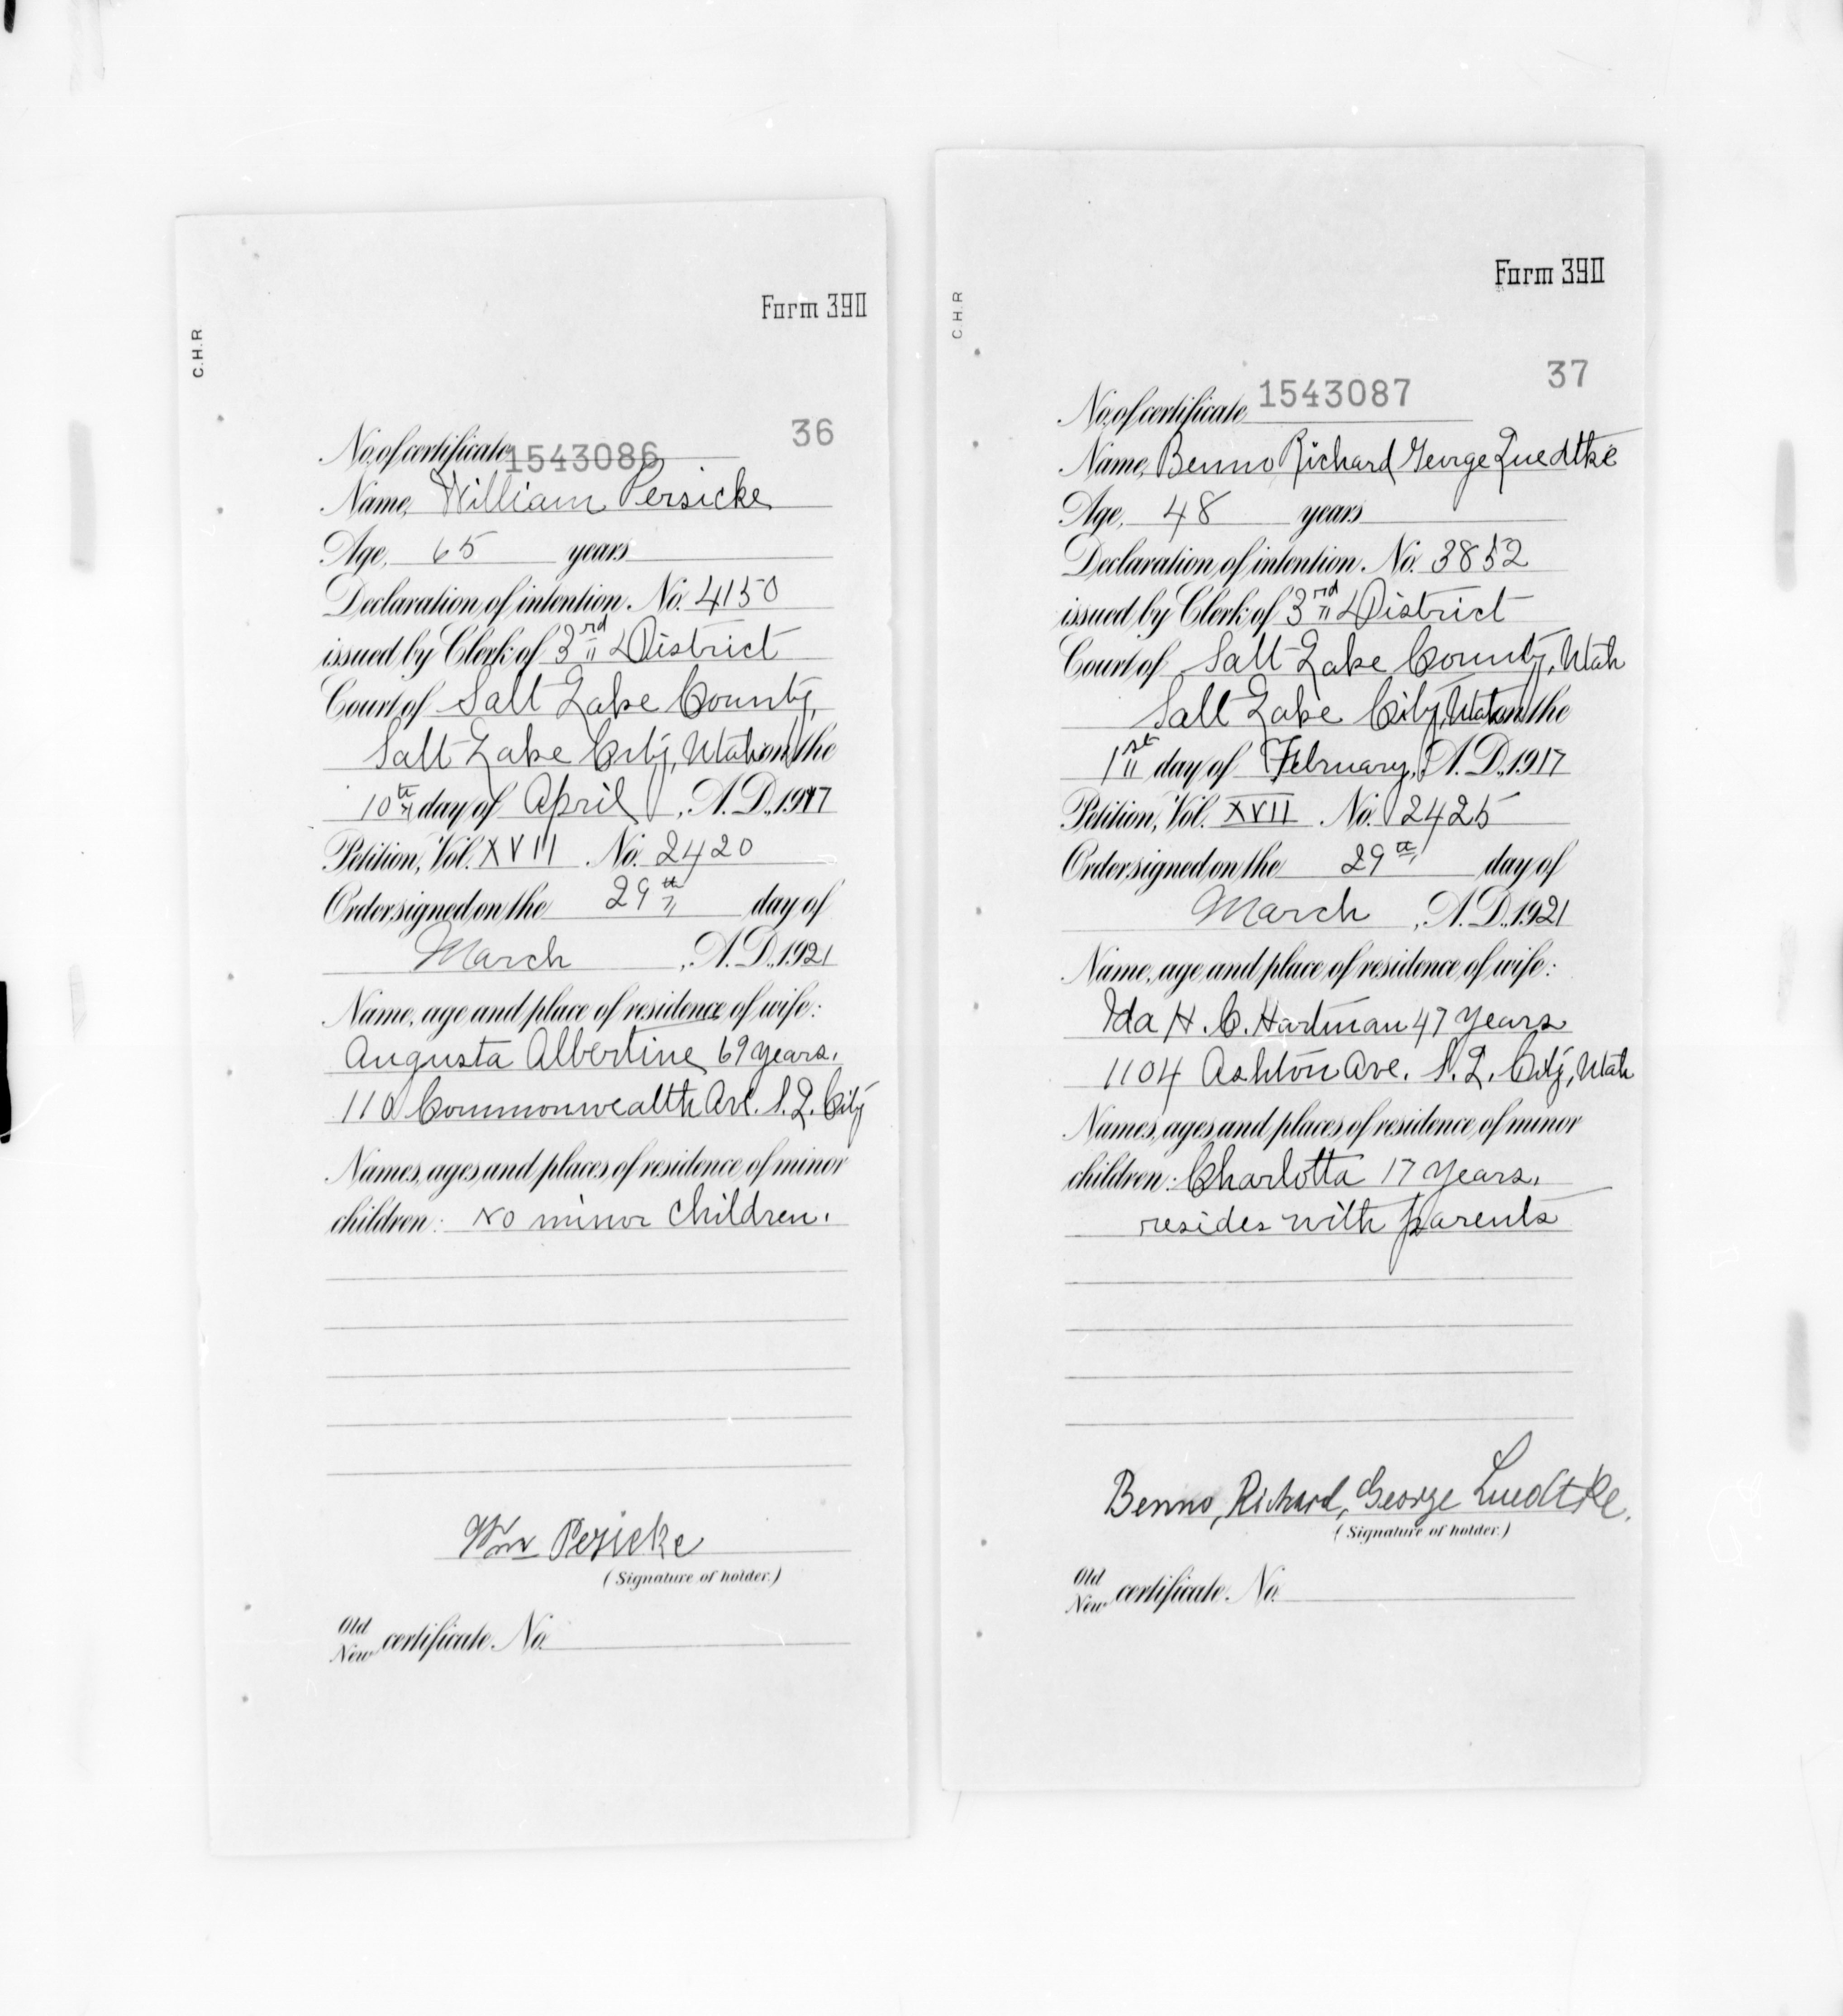 Form 390
C.H.R
36
No. of certificate 1543086
Name, William Persicke
Age, 65 years
Declaration of intention. No. 4150
issued by Clerk of 3rd District
Court of Salt Lake County,
Salt Lake City, Utah on the
10th day of April, A.D., 1917
Petition, Vol. XVII No. 2420
Order signed on the 29th day of
March, A.D., 1921
Name, age and place of residence of wife:
Augusta Albertine 69 years.
110 Commonwealth Ave. S.L. City
Names, ages and places of residence of minor
children: No minor children.
Wm Persicke
(Signature of holder.)
Old
New certificate. No.
Form 390
C.H.R
37
No. of certificate 1543087
Name, Benno Richard George Luedtke
Age, 48 years
Declaration of intention. No. 3852
issued by Clerk of 3rd District
Court of Salt Lake County, Utah
Salt Lake City, Utah on the
1st day of February, A.D., 1917
Petition, Vol. XVII No. 2425
Order signed on the 29th day of
March, A.D., 1921
Name, age and place of residence of wife:
Ida H. C. Hartman 47 years
1104 Ashton Ave. S.L. City, Utah
Names, ages and places of residence of minor
children: Charlotta 17 years,
resides with parents
Benno, Richard, George Luedtke.
(Signature of holder.)
Old
New certificate. No.